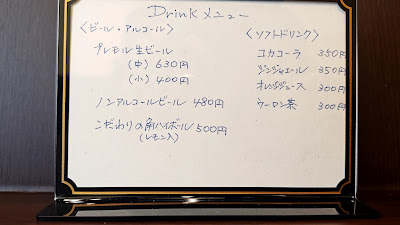 Drink メニュー
〈ビール・アルコール〉
プレモル生ビール
(中) 630円
(小) 400円
ノンアルコールビール 480円
こだわりの角ハイボール 500円
(レモン入)
〈ソフトドリンク〉
コカコーラ 350円
ジンジャエール 350円
オレンジジュース 300円
ウーロン茶 300円